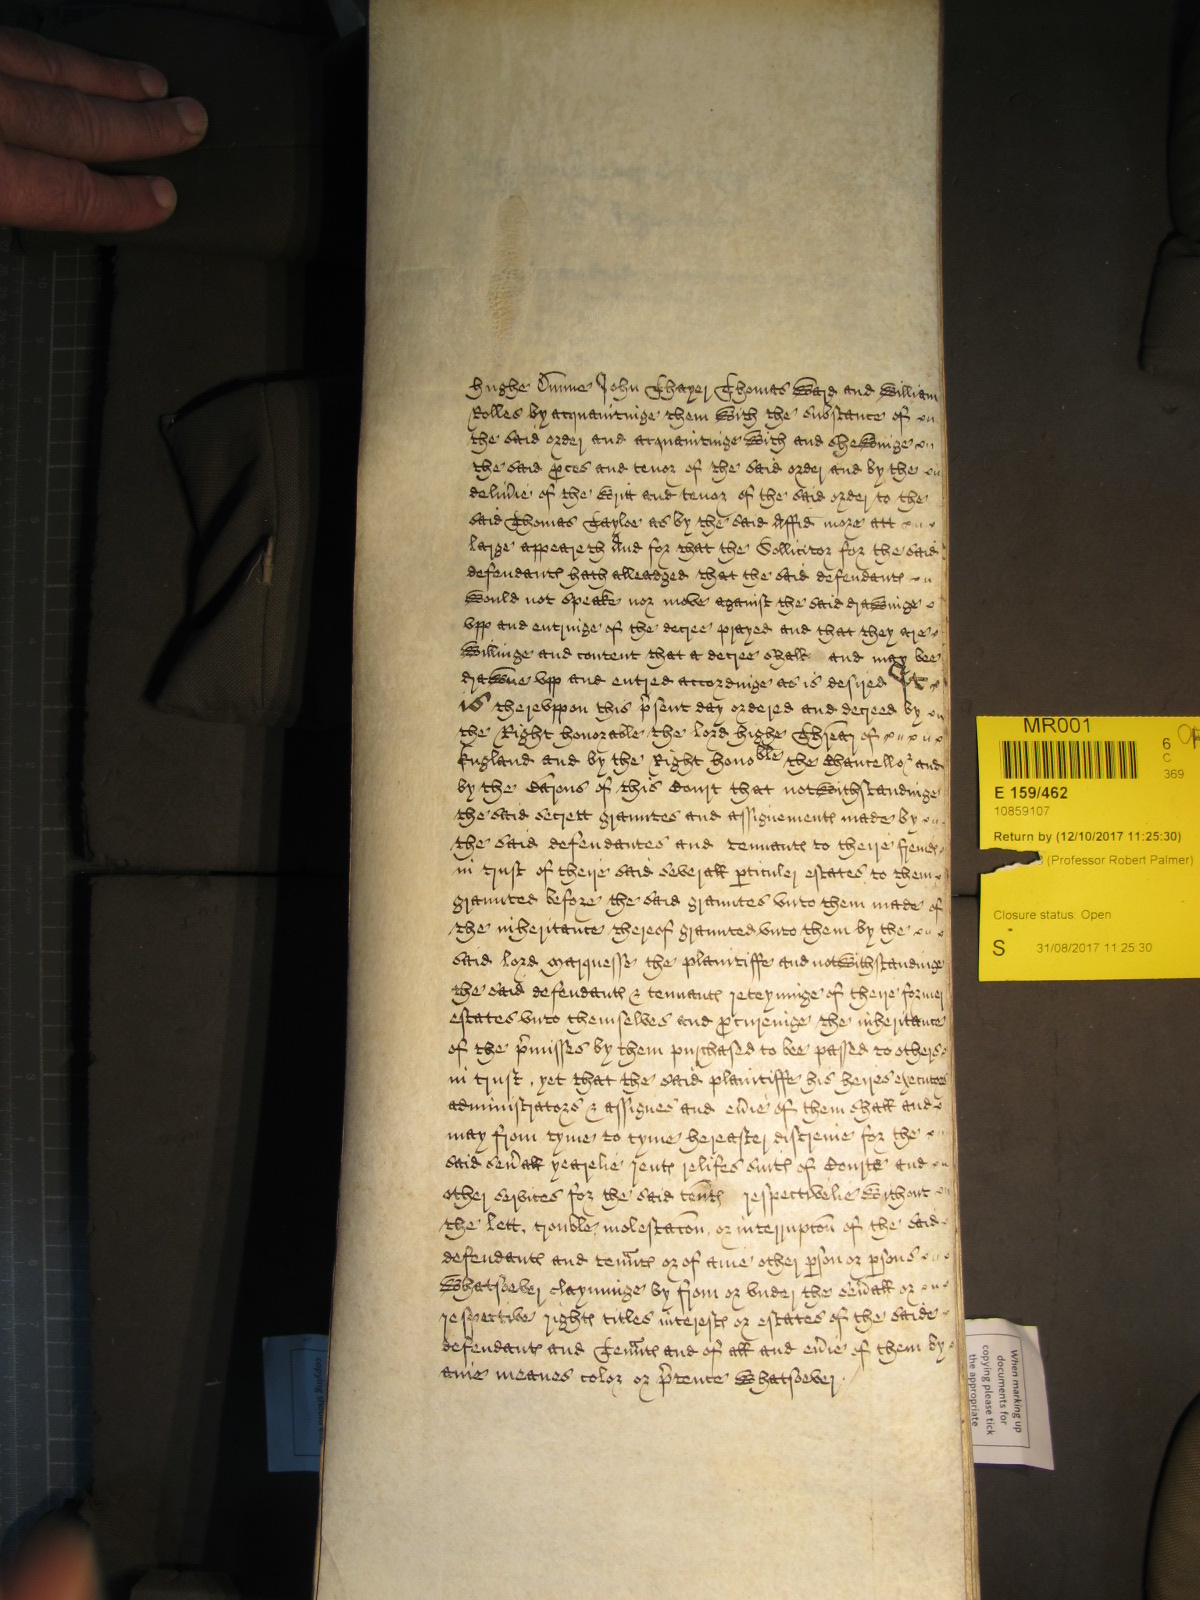 hughe Dunne John Thayer Thomas Ward and William
Rolles by acquaintinge them with the substance of
the said order and acquaintinge with and shewinge
the said pces and tenor of the said order and by the
delivie of the writt and tenor of the said order to the
said Thomas Tayloe as by the said Affid more att
large appeareth And for that the Sollicitor for the said
defendants hath alleadged that the said defendants
would not speake nor move against the said drawinge
vpp and entringe of the decree prayed and that they are
willinge and content that a decree shall and may bee
drawne vpp and entred accordinge as is desired It
is therevppon this psent day ordered and decreed by
the Right honorable the lord highe Threar of
England and by the Right honoble the Chancellor and
by the Barons of this Court that notwithstandinge
the said secrett grauntes and assignements made by
the said defendantes and tennants to theire friends
in trust of theire said severall pticuler estates to them
graunted before the said grauntes vnto them made of
the inheritance thereof graunted vnto them by the
said lord Marquesse the plaintiffe and notwithstandinge
the said defendants & tennants reteyninge of theire former
estates vnto themselves and pcureinge the inheritance
of the pmisses by them purchased to bee passed to others
in trust, yet that the said plaintiffe his heires executors
administrators & assignes and evie of them shall and
may from tyme to tyme hereafter distreine for the
said sevall yearelie rents reliefes suits of Courte and
other services for the said tents respectivelie without
the lett, trouble, molestacon, or interrupcon of the said
defendants and tennts or of anie other pson or psons
whatsoever clayminge by from or vnder the sevall or
respective rights titles interests or estates of the saide
defendants and Tennts and of all and evie of them by
anie meanes color or ptence whatsoever.
MR001
6
C
369
E 159/462
10859107
Return by (12/10/2017 11:25:30)
(Professor Robert Palmer)
Closure status: Open
S 31/08/2017 11:25:30
When marking up
documents for
copying please tick
the appropriate